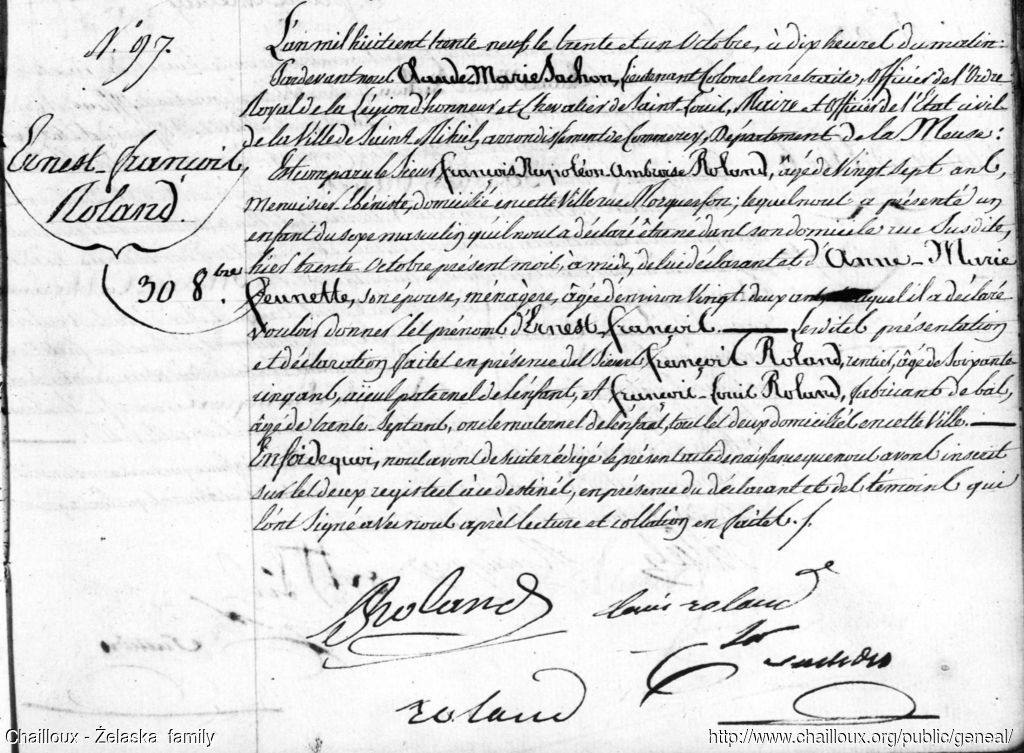 N.° 97.
Ernest-françois
Roland.
30 8.bre
L'an mil huit cent trente neuf, le trente et un Octobre, à dix heures du matin:
Pardevant nous Claude Marie Sachon, Lieutenant Colonel en retraite, Officier de l'Ordre
Royal de la Légion d'honneur et Chevalier de Saint Louis, Maire et Officier de l'État civil
de la Ville de Saint Mihiel, arrondissement de Commercy, Département de la Meuse:
Est comparu le Sieur françois Napoléon Ambroise Roland, âgé de Vingt sept ans,
Menuisier Ebéniste, domicilié en cette Ville rue ; lequel nous a présenté un
enfant du sexe masculin qu'il nous a déclaré être né dans son domicile rue Susdite,
hier trente Octobre présent mois, à midi, de lui déclarant et d'Anne-Marie
Jeunette, son épouse, ménagère, âgée d'environ Vingt deux ans, auquel il a déclaré
vouloir donner les prénoms d'Ernest, françois. Lesdites présentation
et déclaration faites en présence des Sieurs françois Roland, rentier, âgé de Soixante
un ans, aïeul paternel de l'enfant, et françois-Louis Roland, fabricant de bas,
âgé de trente-Sept ans, oncle maternel de l'enfant, tous les deux domiciliés en cette Ville.
En foi de quoi, nous avons de suite rédigé le présent acte de naissance que nous avons inscrit
sur les deux registres à ce destinés, en présence du déclarant et des témoins qui
l'ont Signé avec nous après lecture et collation en faites./.
Roland louis roland
roland
Chailloux - Żelaska family http://www.chailloux.org/public/geneal/